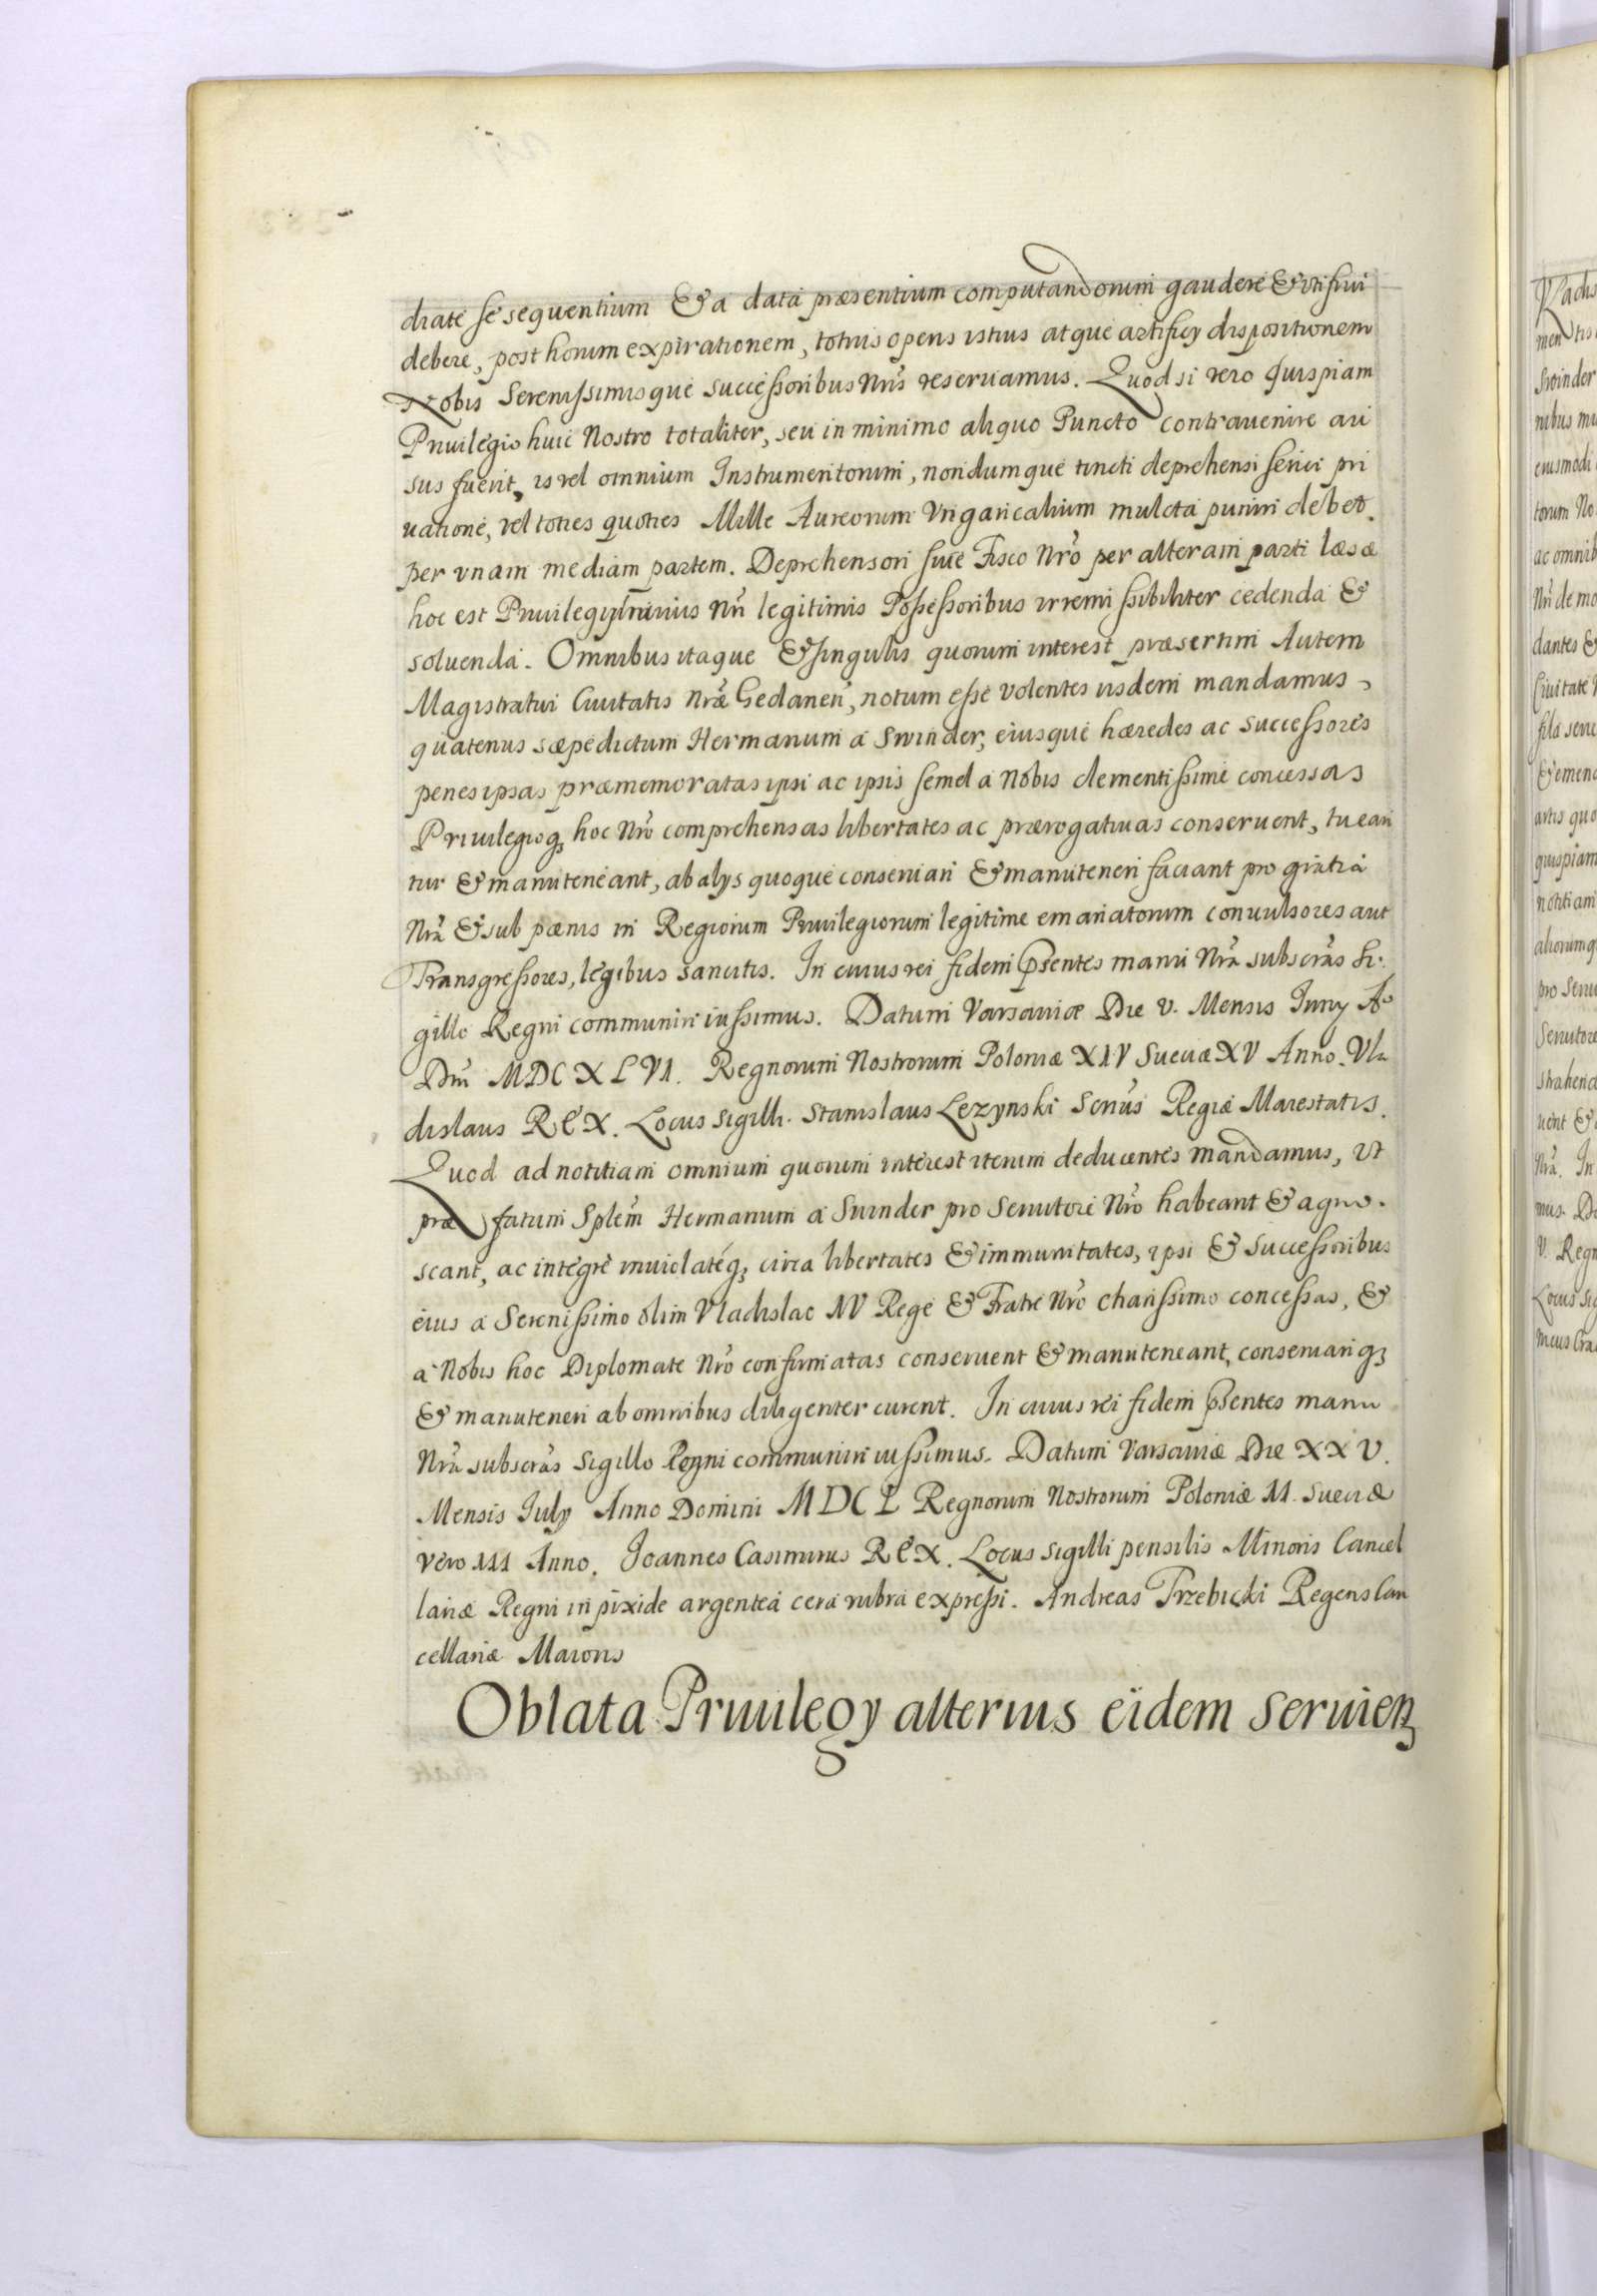 diatè se sequentium & a datà præsentium computandorum gauderè & uti frui
deberè, post horum expirationem, totius operis istius atquè artificÿ dispositionem
Nobis Serenissimisquè successoribus Nr̃is reseruamus. Quod si vero Quispiam
Priuilegio huic Nostro totaliter, seu in minimo aliquo Puncto contrauenire au
sus fuerit, is vel omnium Instrumentorum, nondumquè tincti deprehensi serici pri
uationè, vel toties quoties Mille Aureorum Vngaricalium mulctà puniri debet.
per vnam mediam partem. Deprehensori siuè Fisco Nr̃o per alteram parti læsæ
hoc est Priuilegÿ huius Nr̃i legitimis Possessoribus irremissibiliter cedendà &
soluendà. Omnibus itaque & singulis quorum interest præsertim Autem
Magistratui Ciuitatis Nr̃æ Gedaneñ, notum essè volentes iisdem mandamus,
quatenus sæpèdictum Hermanum à Swinder, eiusquè hæredes ac successorès
penes ipsas præmemoratas ipsi ac ipsis semel à Nobis clementissimè concessas
Priuilegioq; hoc Nr̃o comprehensas libertates ac prærogatiuas conseruent, tuean
tur & manuteneant, ab alÿs quoquè conseruari & manuteneri faciant pro gratià
Nr̃a & sub pænis in Regiorum Priuilegiorum legitime emanatorum conuulsores aut
Transgressores, legibus sancitis. In cuius rei fidem p̃sentes manu Nr̃a subscr̃as Si.
gillo Regni communiri iussimus. Datum Varsauiæ Die V. Mensis Iunÿ Aº
Dñi MDCXLVI. Regnorum Nostrorum Poloniæ XIV Sueciæ XV Anno. Vla
dislaus REX. Locus Sigilli. Stanislaus Lezynski Scrĩus Regiæ Maiestatis.
Quod ad notitiam omnium quorum interest iterum deducentès mandamus, Vt
præfatum Splẽm Hermanum à Suinder pro Seruitorè Nr̃o habeant & agno.
scant, ac intègrè inuiolatèq; circa libertates & immunitates, ipsi & Successoribus
eius à Serenissimo olim Vladislao IV Regè & Fratrè Nr̃o charissimo concessas, &
à Nobis hoc Diplomate Nr̃o confirmatas conseruent & manuteneant, conseruariq;
& manuteneri ab omnibus diligenter curent. In cuius rèi fidem p̃sentes manu
Nr̃a subscr̃as Sigillo Regni communiri iussimus. Datum Varsauiæ Die XXV.
Mensis Iulÿ Anno Domini MDCL Regnorum Nostrorum Poloniæ II. Sueciæ
Vèro III Anno. Joannes Casimirus REX. Locus Sigilli pensilis Minoris Cancel
lariæ Regni in pixide argenteà cerà rubrà expressi. Andreas Trzebicki Regens Can
cellariæ Maioris
Oblata Priuilegÿ alterius eïdem Seruien